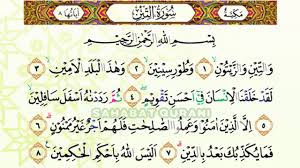 مَكِّيَّة سُوْرَةُ التِّيْنِ اٰيَاتُهَا ٨
بِسْمِ اللّٰهِ الرَّحْمٰنِ الرَّحِيْمِ
وَالتِّيْنِ وَالزَّيْتُوْنِ ١ وَطُوْرِ سِيْنِيْنَ ٢ وَهٰذَا الْبَلَدِ الْاَمِيْنِ ٣
لَقَدْ خَلَقْنَا الْاِنْسَانَ فِيْٓ اَحْسَنِ تَقْوِيْمٍ ٤ ثُمَّ رَدَدْنٰهُ اَسْفَلَ سَافِلِيْنَ
٥ اِلَّا الَّذِيْنَ اٰمَنُوْا وَعَمِلُوا الصّٰلِحٰتِ فَلَهُمْ اَجْرٌ غَيْرُ مَمْنُوْنٍ ٦
فَمَا يُكَذِّبُكَ بَعْدُ بِالدِّيْنِ ٧ اَلَيْسَ اللّٰهُ بِاَحْكَمِ الْحٰكِمِيْنَ ٨
SAHABAT QURANI